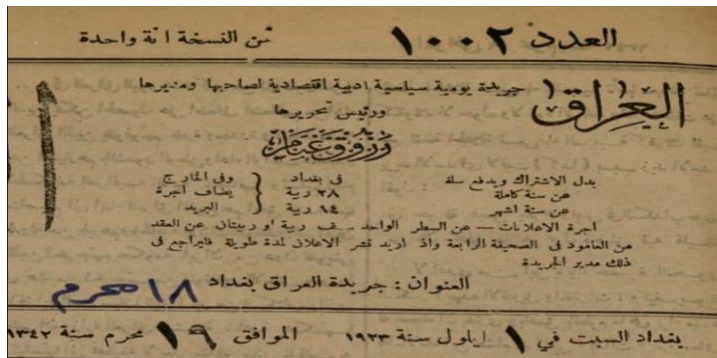 العدد ١٠٠٢ ثمن النسخة آنة واحدة
العراق
جريدة يومية سياسية ادبية اقتصادية لصاحبها ومديرها
ورئيس تحريرها
رزوق غنام
بدل الاشتراك ويدفع سلفا في بغداد وفي الخارج
عن سنة كاملة ٢٨ ربية يضاف اجرة
عن ستة اشهر ١٤ ربية البريد
اجرة الاعلانات — عن السطر الواحد نصف ربية او ربيتان عن العقد
من العامود في الصحيفة الرابعة واذا اريد نشر الاعلان لمدة طويلة فليراجع في
ذلك مدير الجريدة
العنوان : جريدة العراق بغداد ١٨ محرم
بغداد السبت في ١ ايلول سنة ١٩٢٣ الموافق ١٩ محرم سنة ١٣٤٢